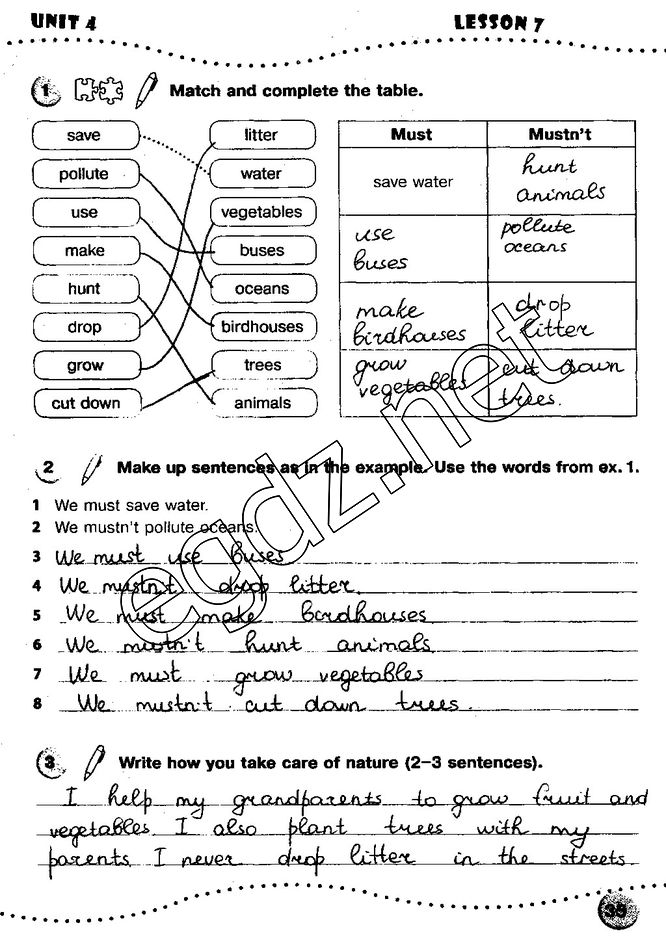 UNIT 4
LESSON 7
1 Match and complete the table.
save
pollute
use
make
hunt
drop
grow
cut down
litter
water
vegetables
buses
oceans
birdhouses
trees
animals
Must Mustn't
save water
hunt
animals
use
buses
pollute
oceans
make
birdhouses
drop
litter
grow
vegetables
cut down
trees.
2 Make up sentences as in the example. Use the words from ex. 1.
1 We must save water.
2 We mustn't pollute oceans.
3 We must use buses
4 We mustn't drop litter.
5 We must make birdhouses
6 We mustn't hunt animals.
7 We must grow vegetables
8 We mustn't cut down trees.
3 Write how you take care of nature (2–3 sentences).
I help my grandparents to grow fruit and
vegetables. I also plant trees with my
parents. I never drop litter in the streets.
39
egdz.net